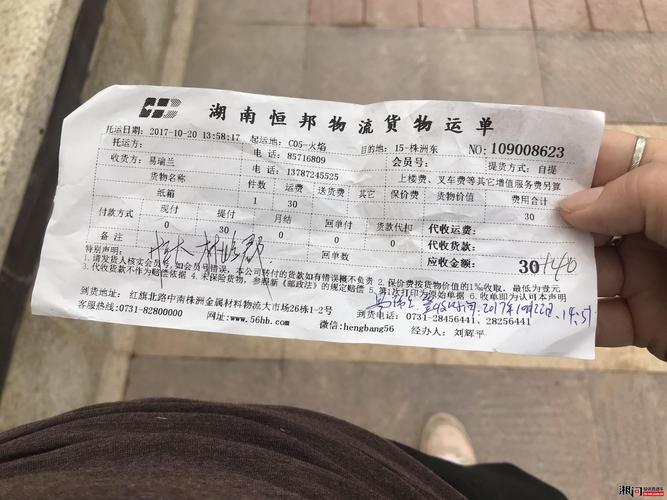 湖南恒邦物流货物运单
托运日期: 2017-10-20 13:58:17 起运地: C05-火焰 目的地: 15-株洲东 NO:109008623
托运方: 电话: 85716809 会员号: 提货方式: 自提
收货方: 易瑞兰 电话: 13787245525 上楼费、叉车费等其它增值服务费另算
货物名称 件数 运费 送货费 其它 保价费 货物价值 费用合计
纸箱 1 30 30
付款方式 现付 提付 月结 回单付 货款代扣 代收运费:
0 30 0 0 0 代收货款:
备注 回单数: 应收金额: 30
特别声明:
1.请发货人核实会员号,如会员号错误,本公司转付的货款如有错误概不负责 2.保价费按货物价值的1%收取,最低为壹元
3.代收货款不作为赔偿依据 4.未保险货物,参照新《邮政法》的规定赔偿 5.第1次打印为原始单据 6.收单即为认可本声明
到货地址: 红旗北路中南株洲金属材料物流大市场26栋1-2号 到货电话: 0731-28456441、28256441
客服热线:0731-82800000 网址:www.56hb.com 微信:hengbang56 经办人: 刘辉平
2017年10月22日 14:51
湘问 投诉直通车